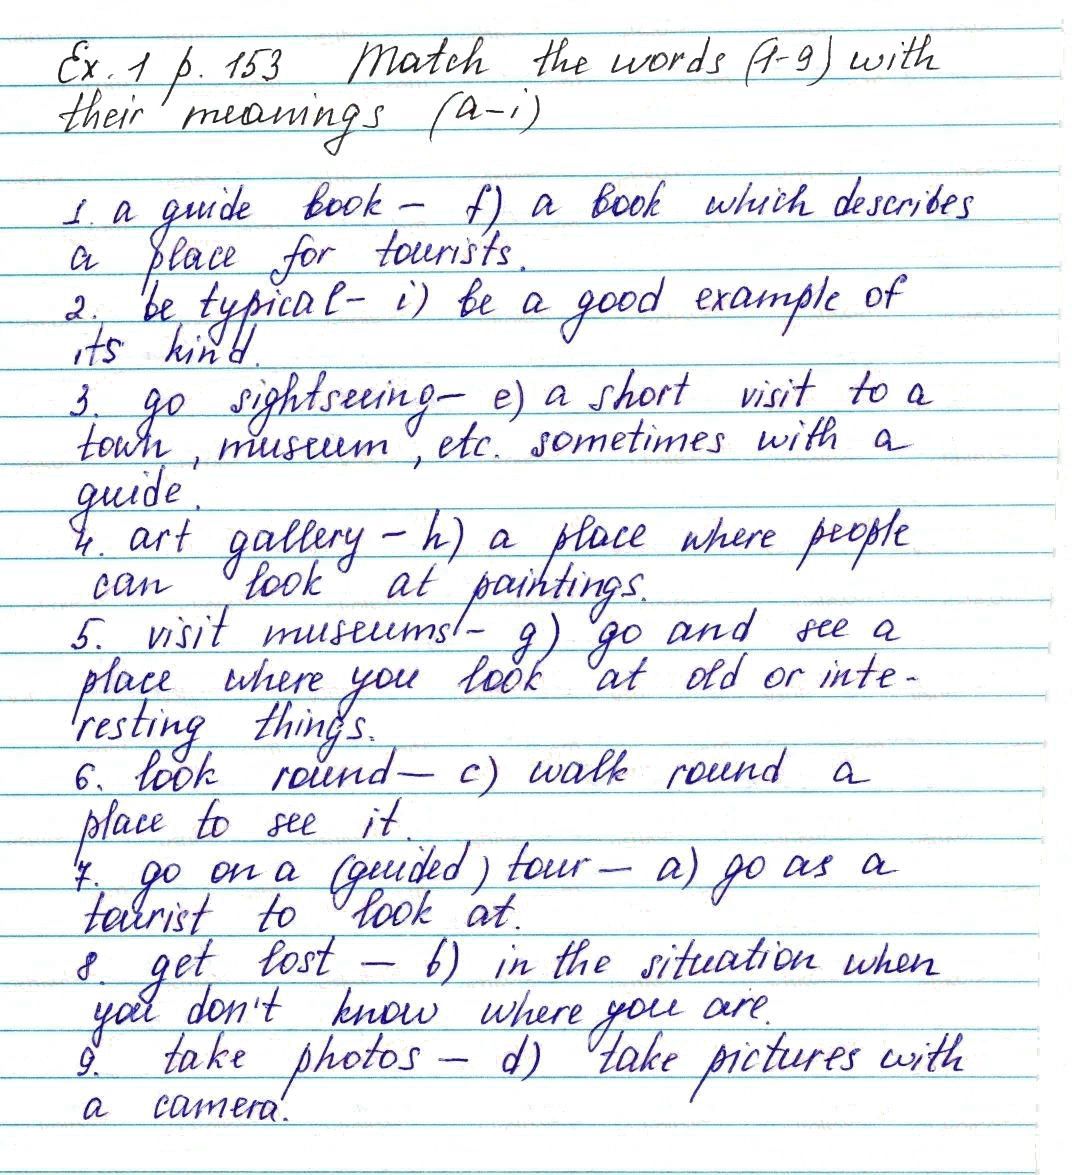 Ex. 1 p. 153 Match the words (1-9) with
their meanings (a-i)
1. a guide book - f) a book which describes
a place for tourists.
2. be typical - i) be a good example of
its kind.
3. go sightseeing - e) a short visit to a
town, museum, etc. sometimes with a
guide.
4. art gallery - h) a place where people
can look at paintings.
5. visit museums - g) go and see a
place where you look at old or inte-
resting things.
6. look round - c) walk round a
place to see it.
7. go on a (guided) tour - a) go as a
tourist to look at.
8. get lost - b) in the situation when
you don't know where you are.
9. take photos - d) take pictures with
a camera.